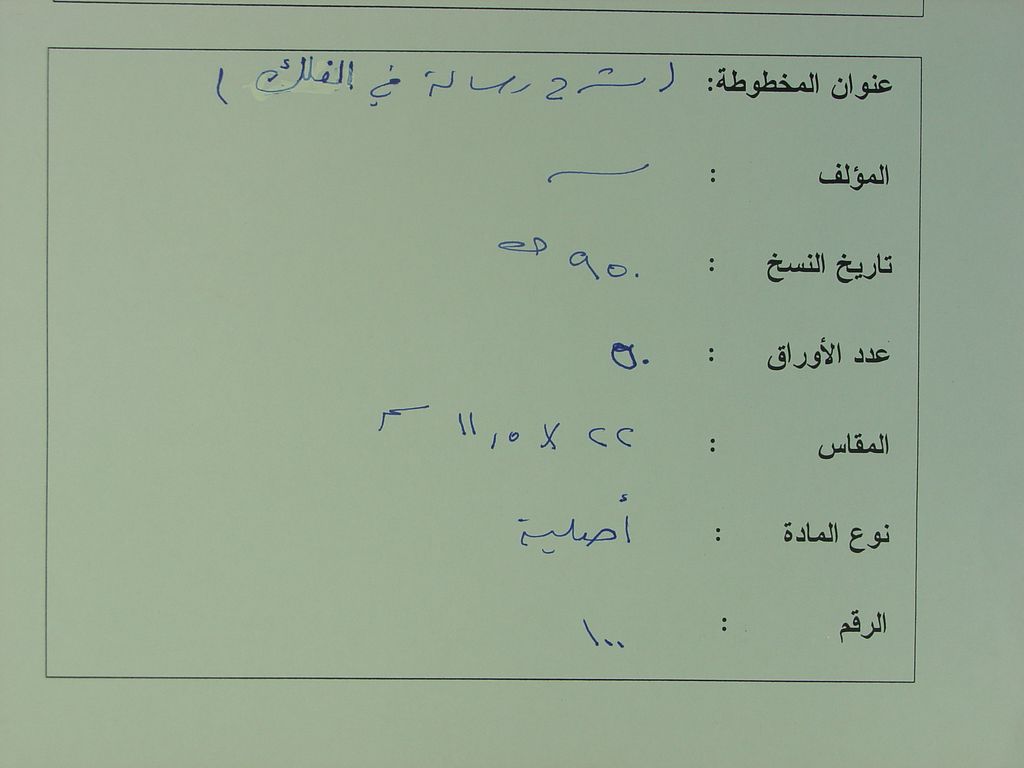 عنوان المخطوطة: ( شرح رسالة في الفلك )
المؤلف : ـــ
تاريخ النسخ : ٩٥٠ هـ
عدد الأوراق : ٥٠
المقاس : ٢٢ × ١١,٥ سم
نوع المادة : أصلية
الرقم : ١٠٠